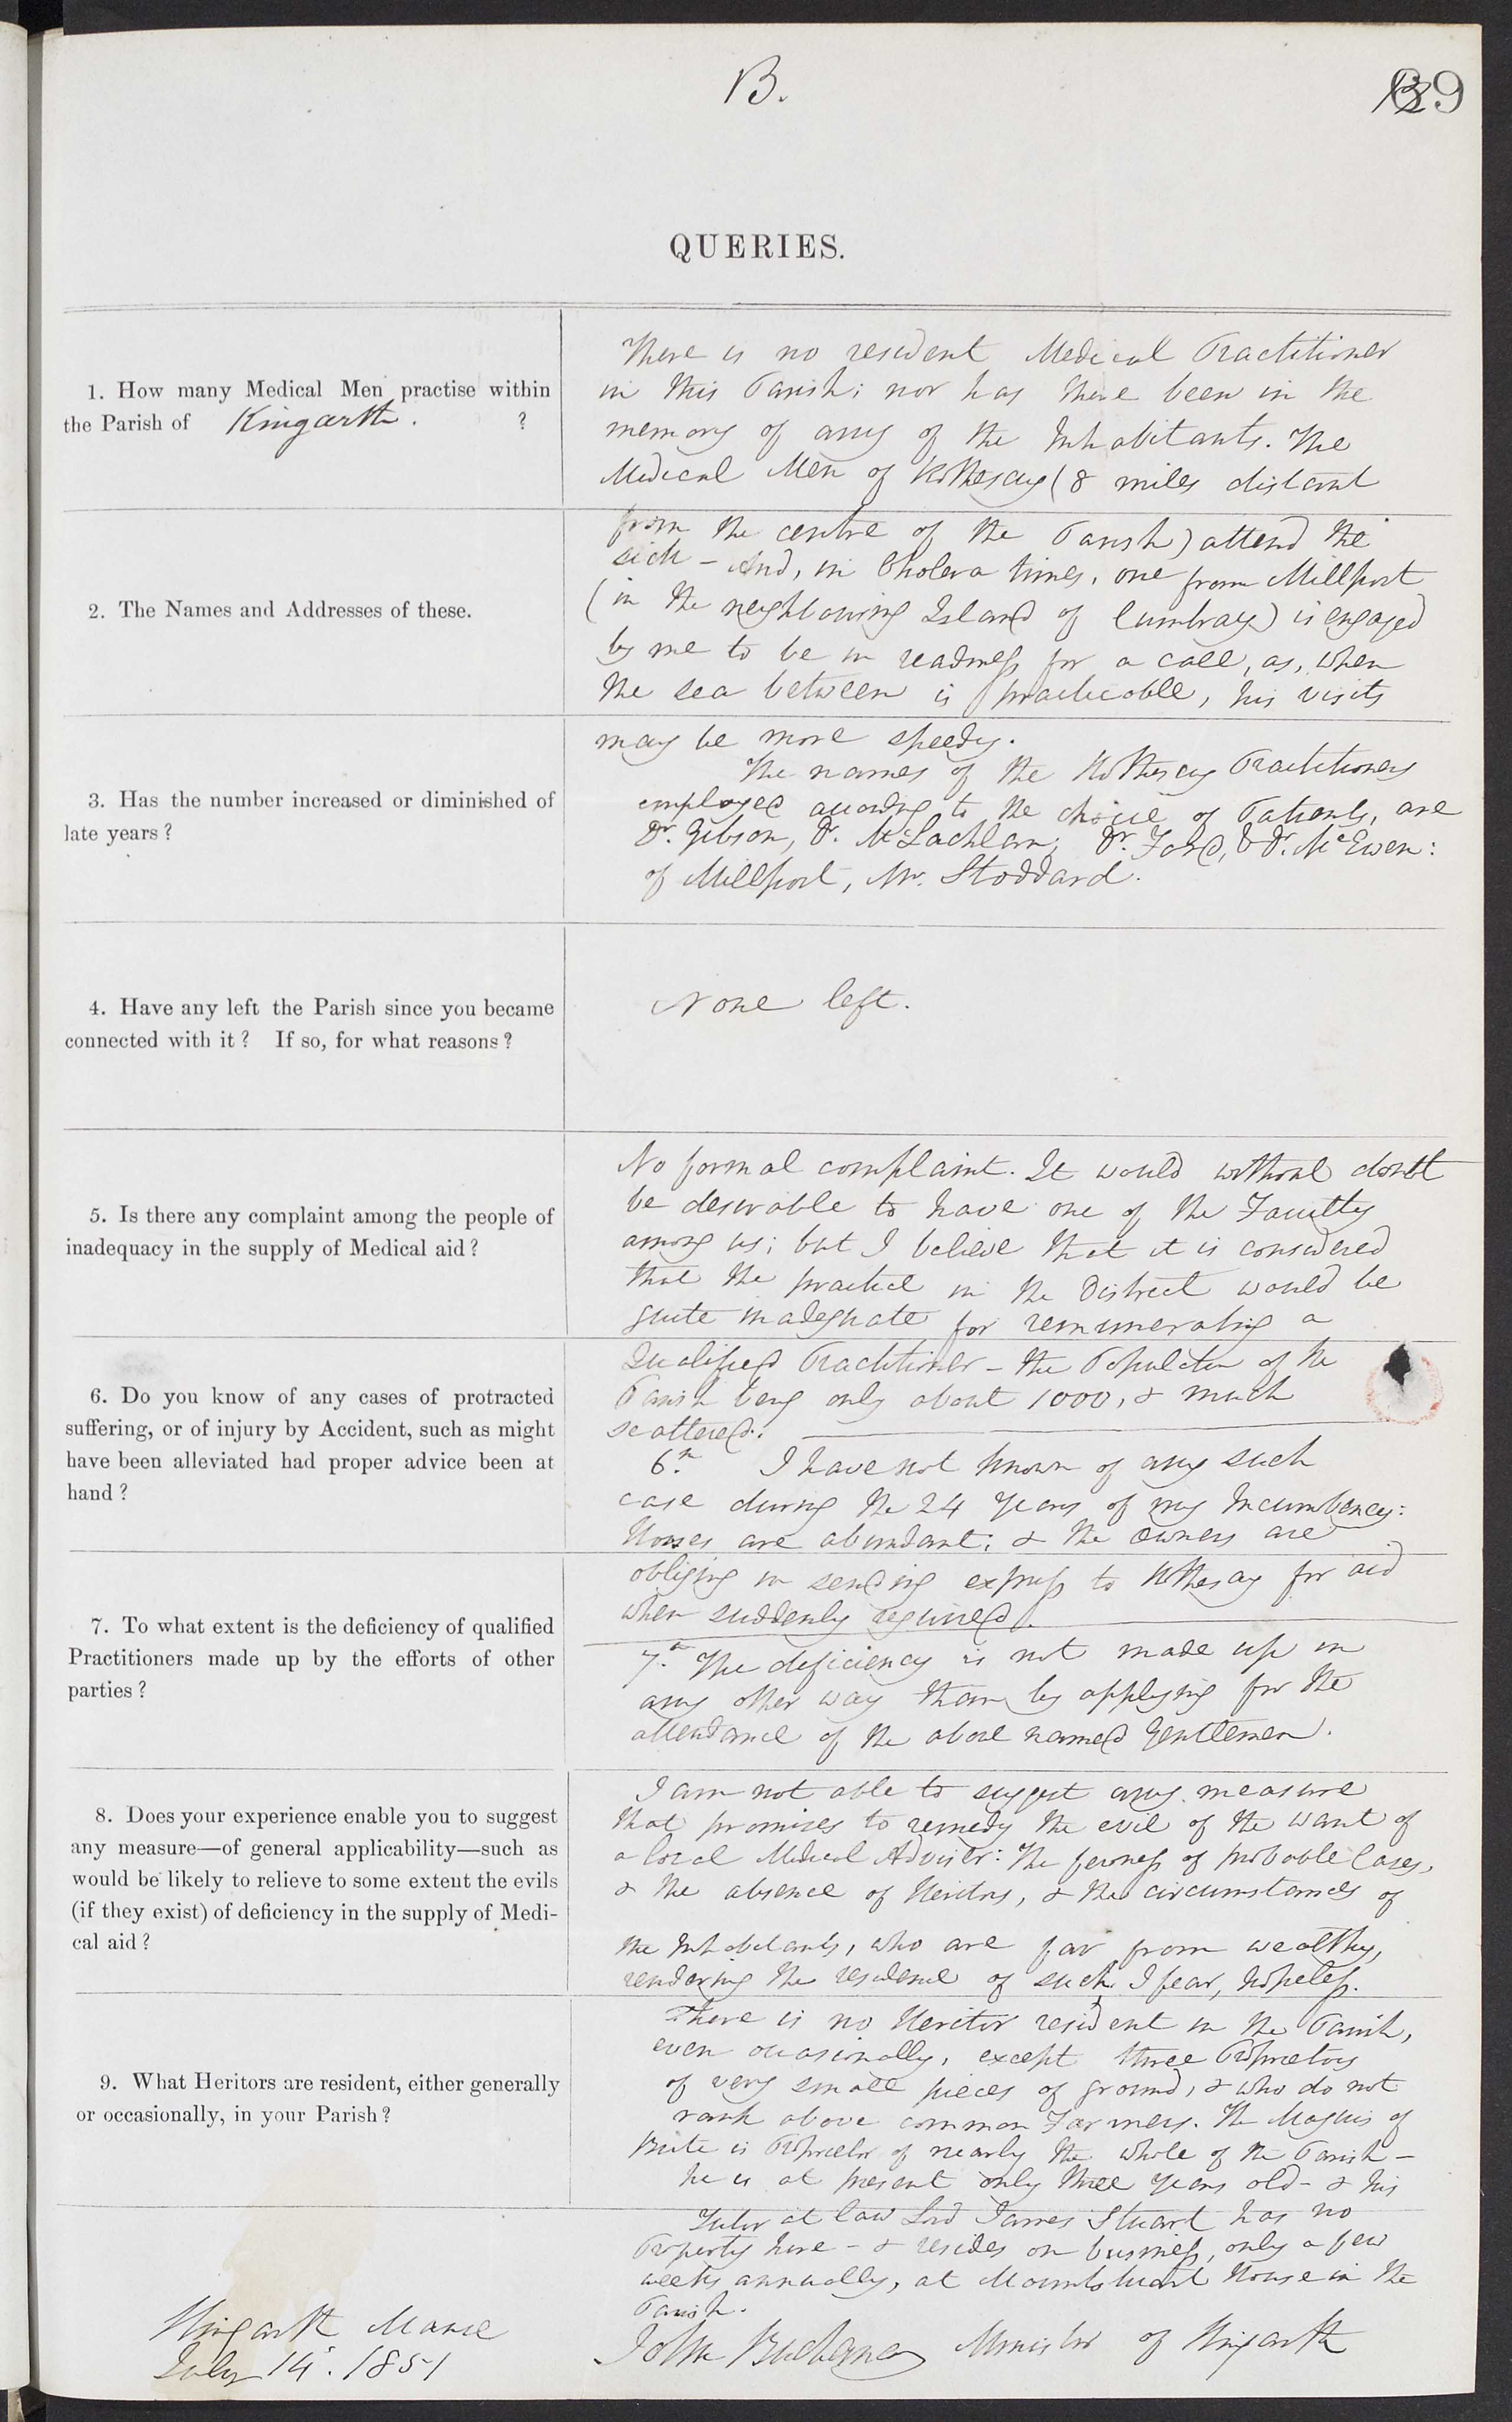 B.
69
QUERIES.
1. How many Medical Men practise within
the Parish of Kingarth. ?
There is no resident Medical Practitioner
in this Parish; nor has there been in the
memory of any of the Inhabitants. The
Medical Men of Rothesay (8 miles distant
from the centre of the Parish) attend the
sick – And, in Cholera times, one from Millport
(in the neighbouring Island of Cumbray) is engaged
by me to be in readiness for a call, as, when
the sea between is practicable, his visits
may be more speedy.
2. The Names and Addresses of these.
3. Has the number increased or diminished of
late years?
The names of the Rothesay Practitioners
employed according to the choice of Patients, are
Dr. Gibson, Dr. McLachlan, Dr. Ford, & Dr. McEwen:
of Millport, Mr. Stoddard.
4. Have any left the Parish since you became
connected with it? If so, for what reasons?
None left.
5. Is there any complaint among the people of
inadequacy in the supply of Medical aid?
No formal complaint. It would without doubt
be desirable to have one of the Faculty
among us; but I believe that it is considered
that the practice in the District would be
quite inadequate for remunerating a
Qualified Practitioner – the Population of the
Parish being only about 1000, & much
scattered.
6. Do you know of any cases of protracted
suffering, or of injury by Accident, such as might
have been alleviated had proper advice been at
hand?
6. I have not known of any such
case during the 24 years of my Incumbency:
Horses are abundant; & the owners are
obliging in sending express to Rothesay for aid
when suddenly required.
7. To what extent is the deficiency of qualified
Practitioners made up by the efforts of other
parties?
7. The deficiency is not made up in
any other way than by applying for the
attendance of the above named Gentlemen.
8. Does your experience enable you to suggest
any measure—of general applicability—such as
would be likely to relieve to some extent the evils
(if they exist) of deficiency in the supply of Medi-
cal aid?
I am not able to suggest any measure
that promises to remedy the evil of the want of
a local Medical Adviser: The fewness of probable Cases,
& the absence of Heritors, & the circumstances of
the Inhabitants, who are far from wealthy,
rendering the residence of such, I fear, hopeless.
9. What Heritors are resident, either generally
or occasionally, in your Parish?
There is no Heritor resident in the Parish,
even occasionally, except three Proprietors
of very small pieces of ground, & who do not
rank above common Farmers. The Marquis of
Bute is Proprietor of nearly the whole of the Parish –
he is at present only three years old – & his
Tutor at law Lord James Stuart has no
Property here – & resides on business, only a few
weeks annually, at Mountstuart House in the
Parish.
John Buchanan Minister of Kingarth
Kingarth Manse
July 14. 1851